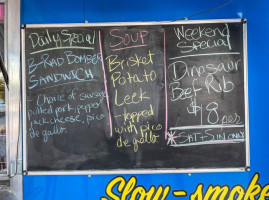 Daily Special
B-RAD Bomber
SANDWICH
Choice of sausage
pulled pork, pepper
jack cheese, pico
de gallo.
Soup
Brisket
Potato
Leek
-topped
with pico
de gallo.
Weekend
Special
Dinosaur
Beef Rib
$18 each
*SAT+SUN ONLY
Slow-smoke